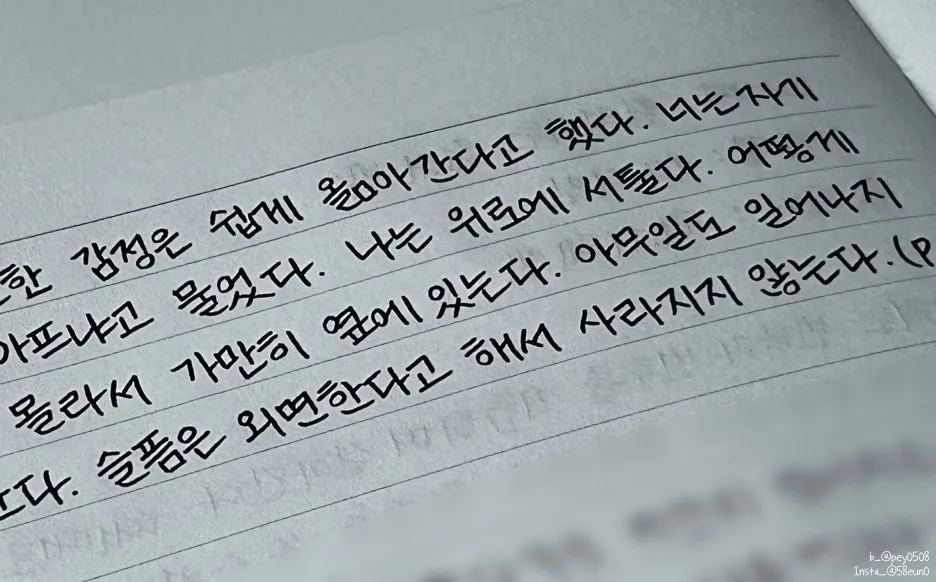 한 감정은 쉽게 옮아간다고 했다. 너는 자기
아프냐고 물었다. 나는 위로에 서툴다. 어떻게
몰라서 가만히 옆에 있는다. 아무일도 일어나지
다. 슬픔은 외면한다고 해서 사라지지 않는다. (p
b_@pey0508
Insta_@58eun0